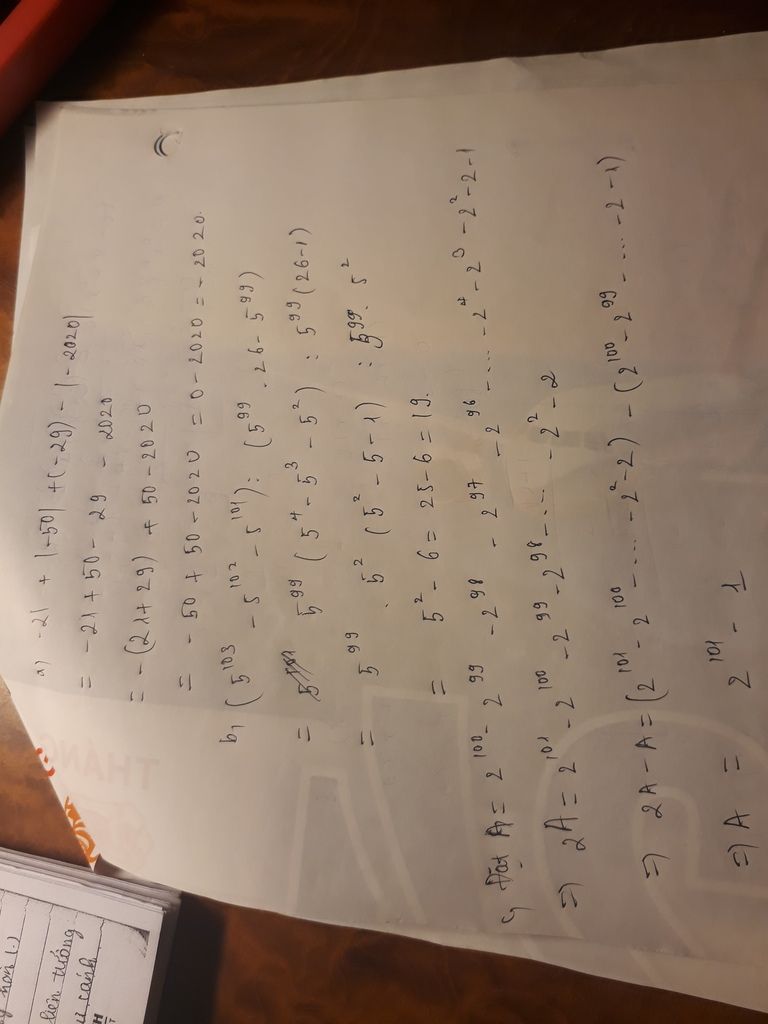 a) -21 + |-50| + (-29) - |-2020|
= -21 + 50 - 29 - 2020
= -(21+29) + 50 - 2020
= -50 + 50 - 2020 = 0 - 2020 = -2020.
b, (5^103 - 5^102 - 5^101) : (5^99 . 26 - 5^99)
= 5^99 (5^4 - 5^3 - 5^2) : 5^99 (26-1)
= 5^99 . 5^2 (5^2 - 5 - 1) : 5^99 . 5^2
= 5^2 - 6 = 25 - 6 = 19.
c, Đặt A = 2^100 - 2^99 - 2^98 - 2^97 - 2^96 - ... - 2^4 - 2^3 - 2^2 - 2 - 1
=> 2A = 2^101 - 2^100 - 2^99 - 2^98 - ... - 2^2 - 2
=> 2A - A = (2^101 - 2^100 - ... - 2^2 - 2) - (2^100 - 2^99 - ... - 2 - 1)
=> A = 2^101 - 1
THÁNG
liên tưởng
cảnh